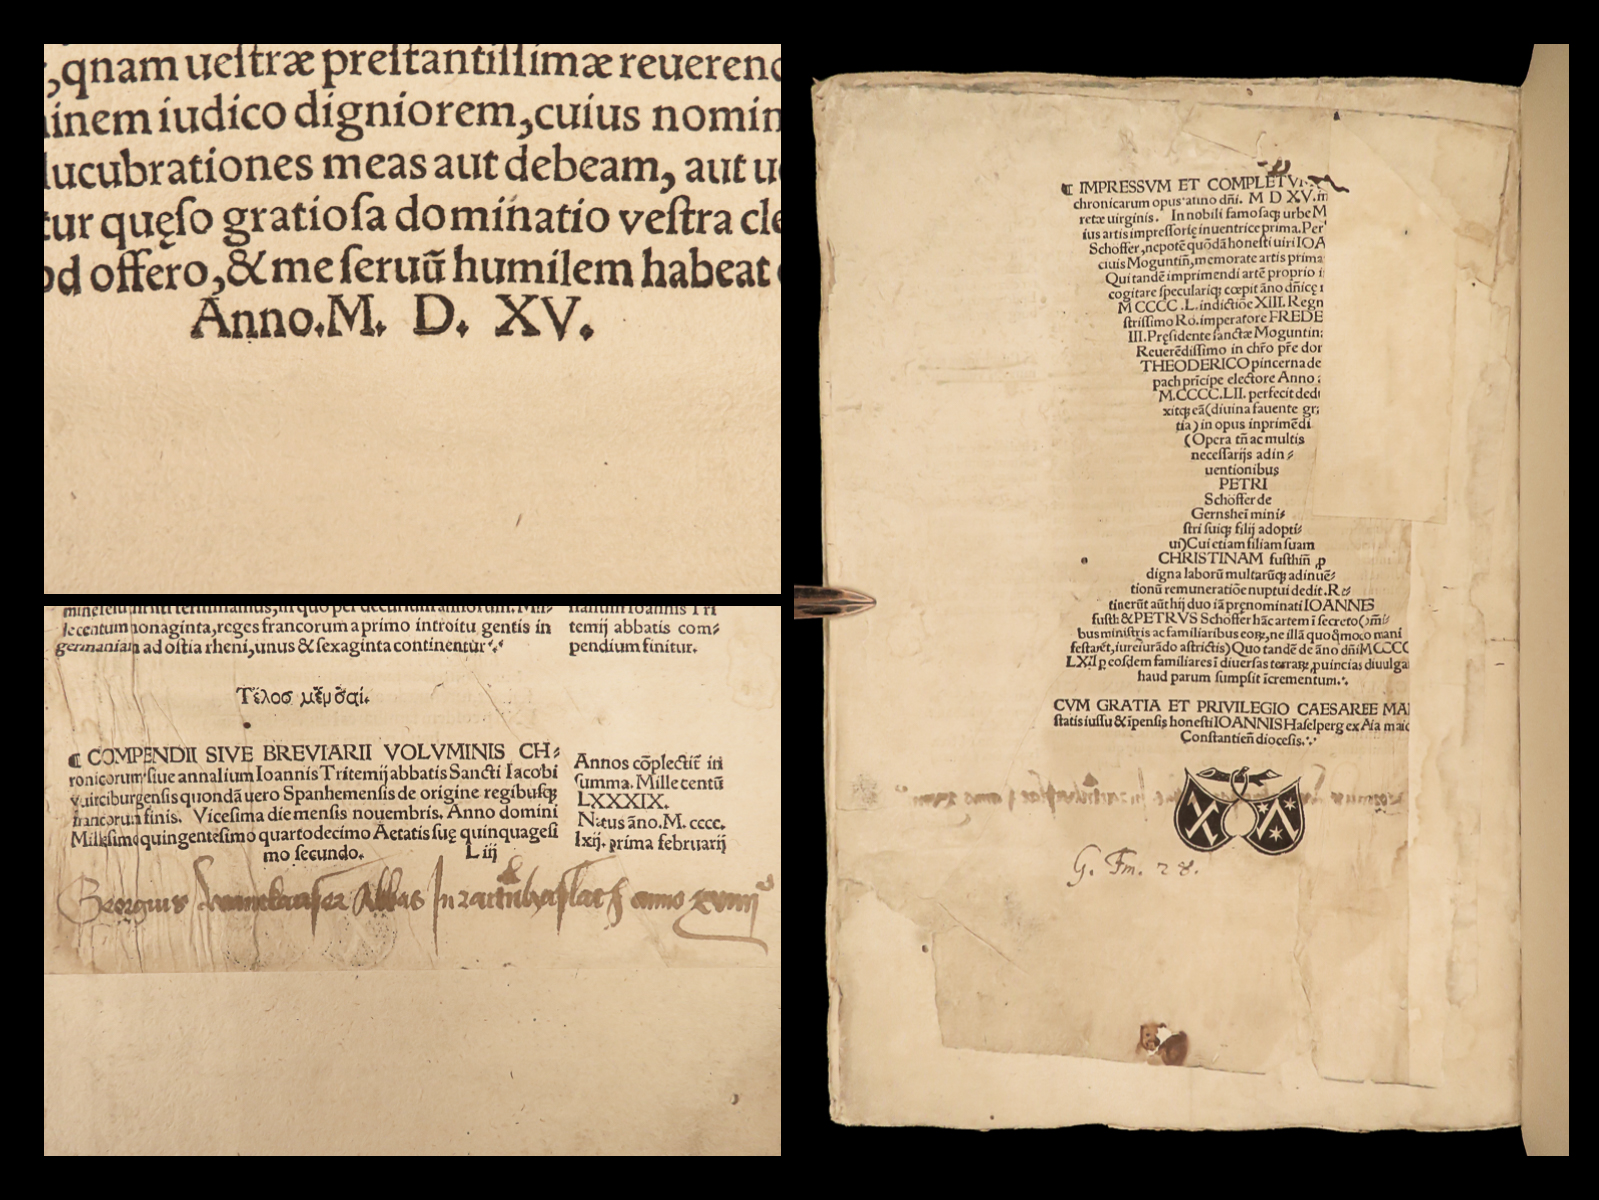 ,qnam ueſtræ preſtantiſſimæ reuerenc
inem iudico digniorem,cuius nomin
lucubrationes meas aut debeam, aut u
tur quęſo gratioſa dominatio veſtra cle
od offero,&me ſeruū humilem habeat
Anno.M. D. XV.
lecentum nonaginta,reges francorum a primo introitu gentis in
germaniam ad oſtia rheni,unus & ſexaginta continentur
temij abbatis com⸗
pendium finitur.
Τέλοσ
¶ COMPENDII SIVE BREVIARII VOLVMINIS CH⸗
ronicorum ſiue annalium Ioannis Tritemij abbatis Sancti Iacobi
vuirciburgenſis quondā uero Spanhemenſis de origine regibuſqꝫ
francorum finis. Viceſima die menſis nouembris. Anno domini
Milleſimo quingenteſimo quartodecimo Aetatis ſuę quinquageſi
mo ſecundo. L iij
Annos cōplectit in
ſumma. Mille centū
LXXXIX.
Natus āno. M. cccc.
lxij. prima februarij
Georgius Abbas In raittnhaſlach anno xviiij
¶ IMPRESSVM ET COMPLETVM
chronicarum opus anno dn̄i. M D XV.in
retæ uirginis. In nobili famoſaqꝫ urbe M
ius artis impreſſorię inuentrice prima. Per
Schöffer,nepotē quōdā honeſti uiri IOA
ciuis Moguntin̄,memorate artis prima
Qui tandē imprimendi artē proprio i
cogitare ſpeculariqꝫ cœpit āno dn̄icę
M CCCC .L. indictiōe XIII. Regn
ſtriſſimo Ro. imperatore FREDE
III. Pręſidente ſanctæ Moguntin
Reuerēdiſſimo in chr̄o pr̄e dor
THEODERICO pincerna de
pach prīcipe electore Anno
M.CCCC.LII. perfecit dedu
xitqꝫ eā (diuina fauente gra
tia) in opus inprimēdi
(Opera tn̄ ac multis
neceſſarijs adin⸗
uentionibus
PETRI
Schöffer de
Gernsheī mini⸗
ſtri ſuiqꝫ filij adopti⸗
ui)Cui etiam filiam ſuam
CHRISTINAM fuſthin̄ ꝓ
digna laborū multarūqꝫ adinuē⸗
tionū remuneratiōe nuptui dedit. R
tinerūt aūt hij duo iā pręnominati IOANNES
fuſth &PETRVS Schöffer hāc artem ī ſecreto(om̄i⸗
bus miniſtris ac familiaribus eoꝝ,ne illā quoq̄mō mani
feſtarēt,iureiurādo aſtrictis) Quo tandē de āno dn̄i M CCCC
LXII ꝑ eoſdem familiares ī diuerſas terraꝝ ꝓuincias diuulga
haud parum ſumpſit īcrementum.
CVM GRATIA ET PRIVILEGIO CAESAREE MAI
ſtatis iuſſu & īpenſis honeſti IOANNIS Haſelperg ex Aia maio
Conſtantien̄ dioceſis.
G. Fm. 28.